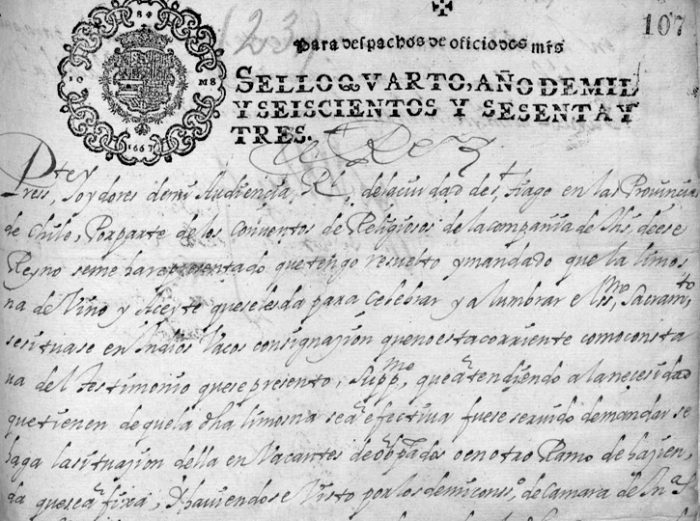 107
(23)
Para despachos de oficio dos mrs
SELLO QVARTO, AÑO DE MIL
Y SEISCIENTOS Y SESENTA Y
TRES.
1663
El Rey
Pres.te y oydores de mi Audiencia R.l de la ciudad de S.tiago en las Provincias
de Chile, Por parte de los conventos de Religiosos de la compañia de Jhs, de ese
Reyno se me ha representado que tengo resuelto y mandado que la limos
na de Vino y Aceyte que se les da para celebrar y alumbrar el ss.mo Sacram.to
se situase en Indios Vacos consignaçion que no esta corriente como consta
va del testimonio que se presento, Supp.do me que atendiendo a la necesidad
que tienen de que la dha limosna sea efectiva fuese servido de mandar se
haga la situaçion della en Vacantes de obpados o en otro Ramo de haçien
da que sea fixa; Y haviendose Visto por los de mi conss.o de Camara de Ind.s